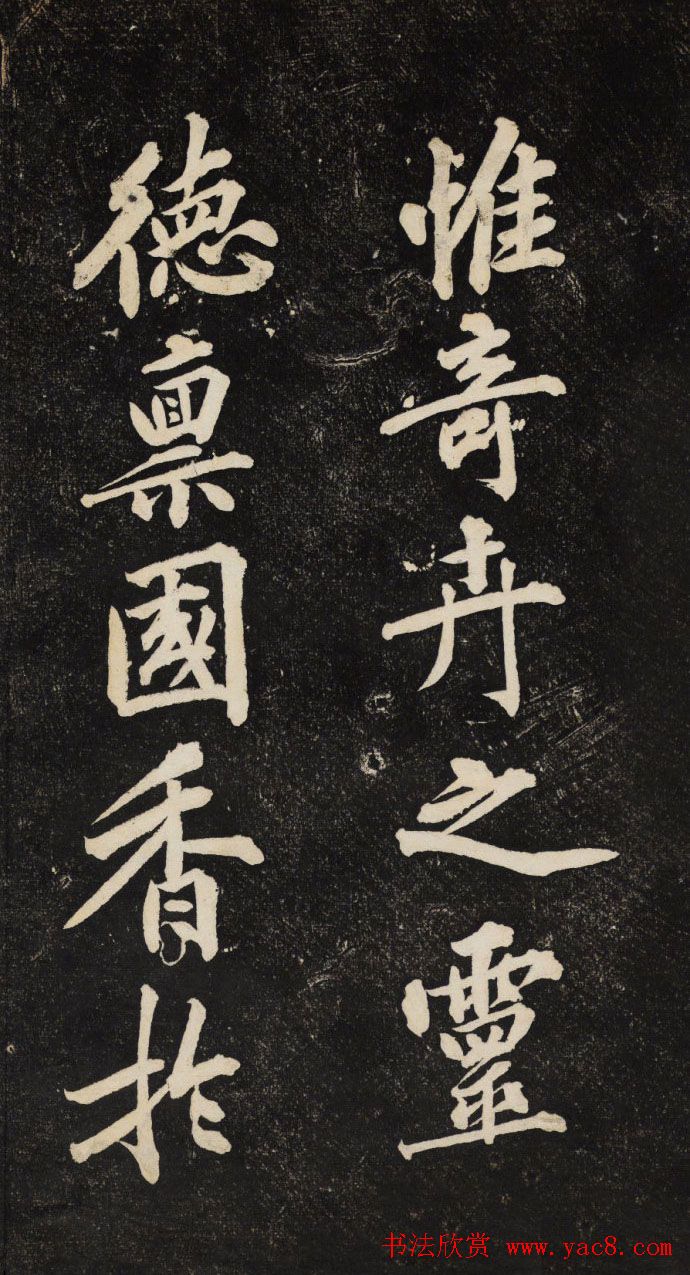 惟奇卉之靈
德禀國香於
书法欣赏 www.yac8.com